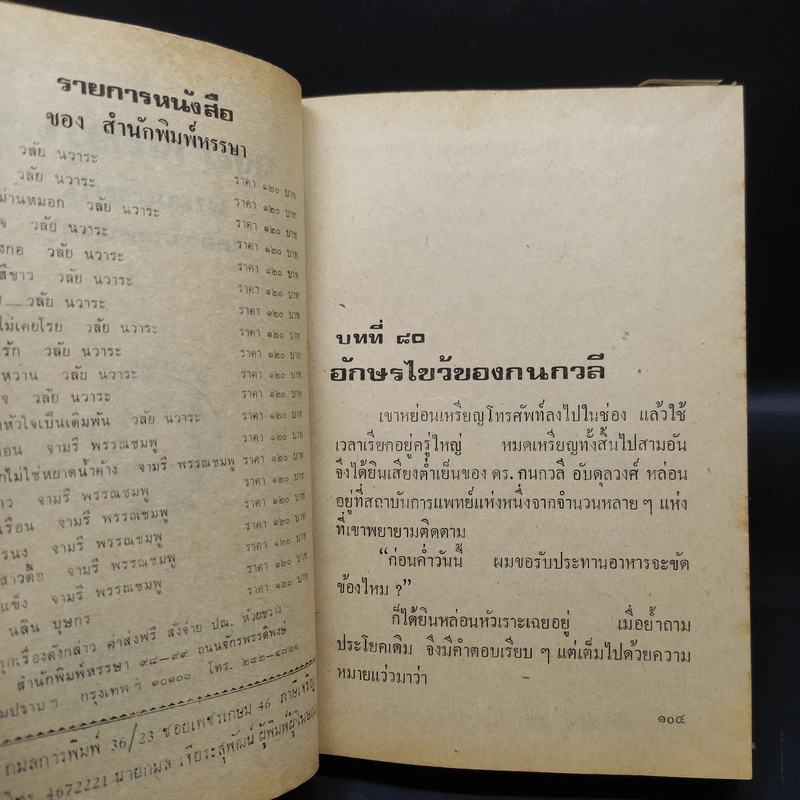 รายการหนังสือ
ของ สำนักพิมพ์หรรษา
วลัย นวาระ
วลัย นวาระ ราคา ๑๒๐ บาท
ม่านหมอก วลัย นวาระ ราคา ๑๒๐ บาท
วลัย นวาระ ราคา ๑๒๐ บาท
งกอ วลัย นวาระ ราคา ๑๒๐ บาท
สีขาว วลัย นวาระ ราคา ๑๒๐ บาท
วลัย นวาระ ราคา ๑๒๐ บาท
ไม่เคยโรย วลัย นวาระ ราคา ๑๒๐ บาท
รัก วลัย นวาระ ราคา ๑๒๐ บาท
หวาน วลัย นวาระ ราคา ๑๒๐ บาท
จ วลัย นวาระ ราคา ๑๒๐ บาท
งหัวใจเป็นเดิมพัน วลัย นวาระ ราคา ๑๒๐ บาท
จามรี พรรณชมพู ราคา ๑๒๐ บาท
กไม่ใช่หยาดน้ำค้าง จามรี พรรณชมพู ราคา ๑๒๐ บาท
าว จามรี พรรณชมพู ราคา ๑๒๐ บาท
เรือน จามรี พรรณชมพู ราคา ๑๒๐ บาท
รนง จามรี พรรณชมพู ราคา ๑๒๐ บาท
สาวดื้อ จามรี พรรณชมพู ราคา ๑๒๐ บาท
แข็ง จามรี พรรณชมพู ราคา ๑๒๐ บาท
นลิน บุษกร ราคา ๑๒๐ บาท
ทุกเรื่องดังกล่าว ค่าส่งฟรี สั่งจ่าย ปณ. ห้วยขวาง
สำนักพิมพ์หรรษา ๙๘-๙๙ ถนนจักรพรรดิพงษ์
มปราบฯ กรุงเทพฯ ๑๐๑๐๐ โทร. ๒๘๒-๔๐๒๑
กมลการพิมพ์ 36/23 ซอยเพชรเกษม 46 ภาษีเจริญ
โทร 4672221 นายกมล เจียระสุพัฒน์ ผู้พิมพ์ผู้โฆษณา
บทที่ ๘๐
อักษรไขว้ของกนกวลี
เขาหย่อนเหรียญโทรศัพท์ลงไปในช่อง แล้วใช้
เวลาเรียกอยู่ครู่ใหญ่ หมดเหรียญทั้งสิ้นไปสามอัน
จึงได้ยินเสียงต่ำเย็นของ ดร. กนกวลี อับดุลวงศ์ หล่อน
อยู่ที่สถาบันการแพทย์แห่งหนึ่งจากจำนวนหลาย ๆ แห่ง
ที่เขาพยายามติดตาม
“ก่อนค่ำวันนี้ ผมขอรับประทานอาหารจะขัด
ข้องไหม ?”
ก็ได้ยินหล่อนหัวเราะเฉยอยู่ เมื่อย้ำถาม
ประโยคเดิม จึงมีคำตอบเรียบ ๆ แต่เต็มไปด้วยความ
หมายแว่วมาว่า
๑๐๔